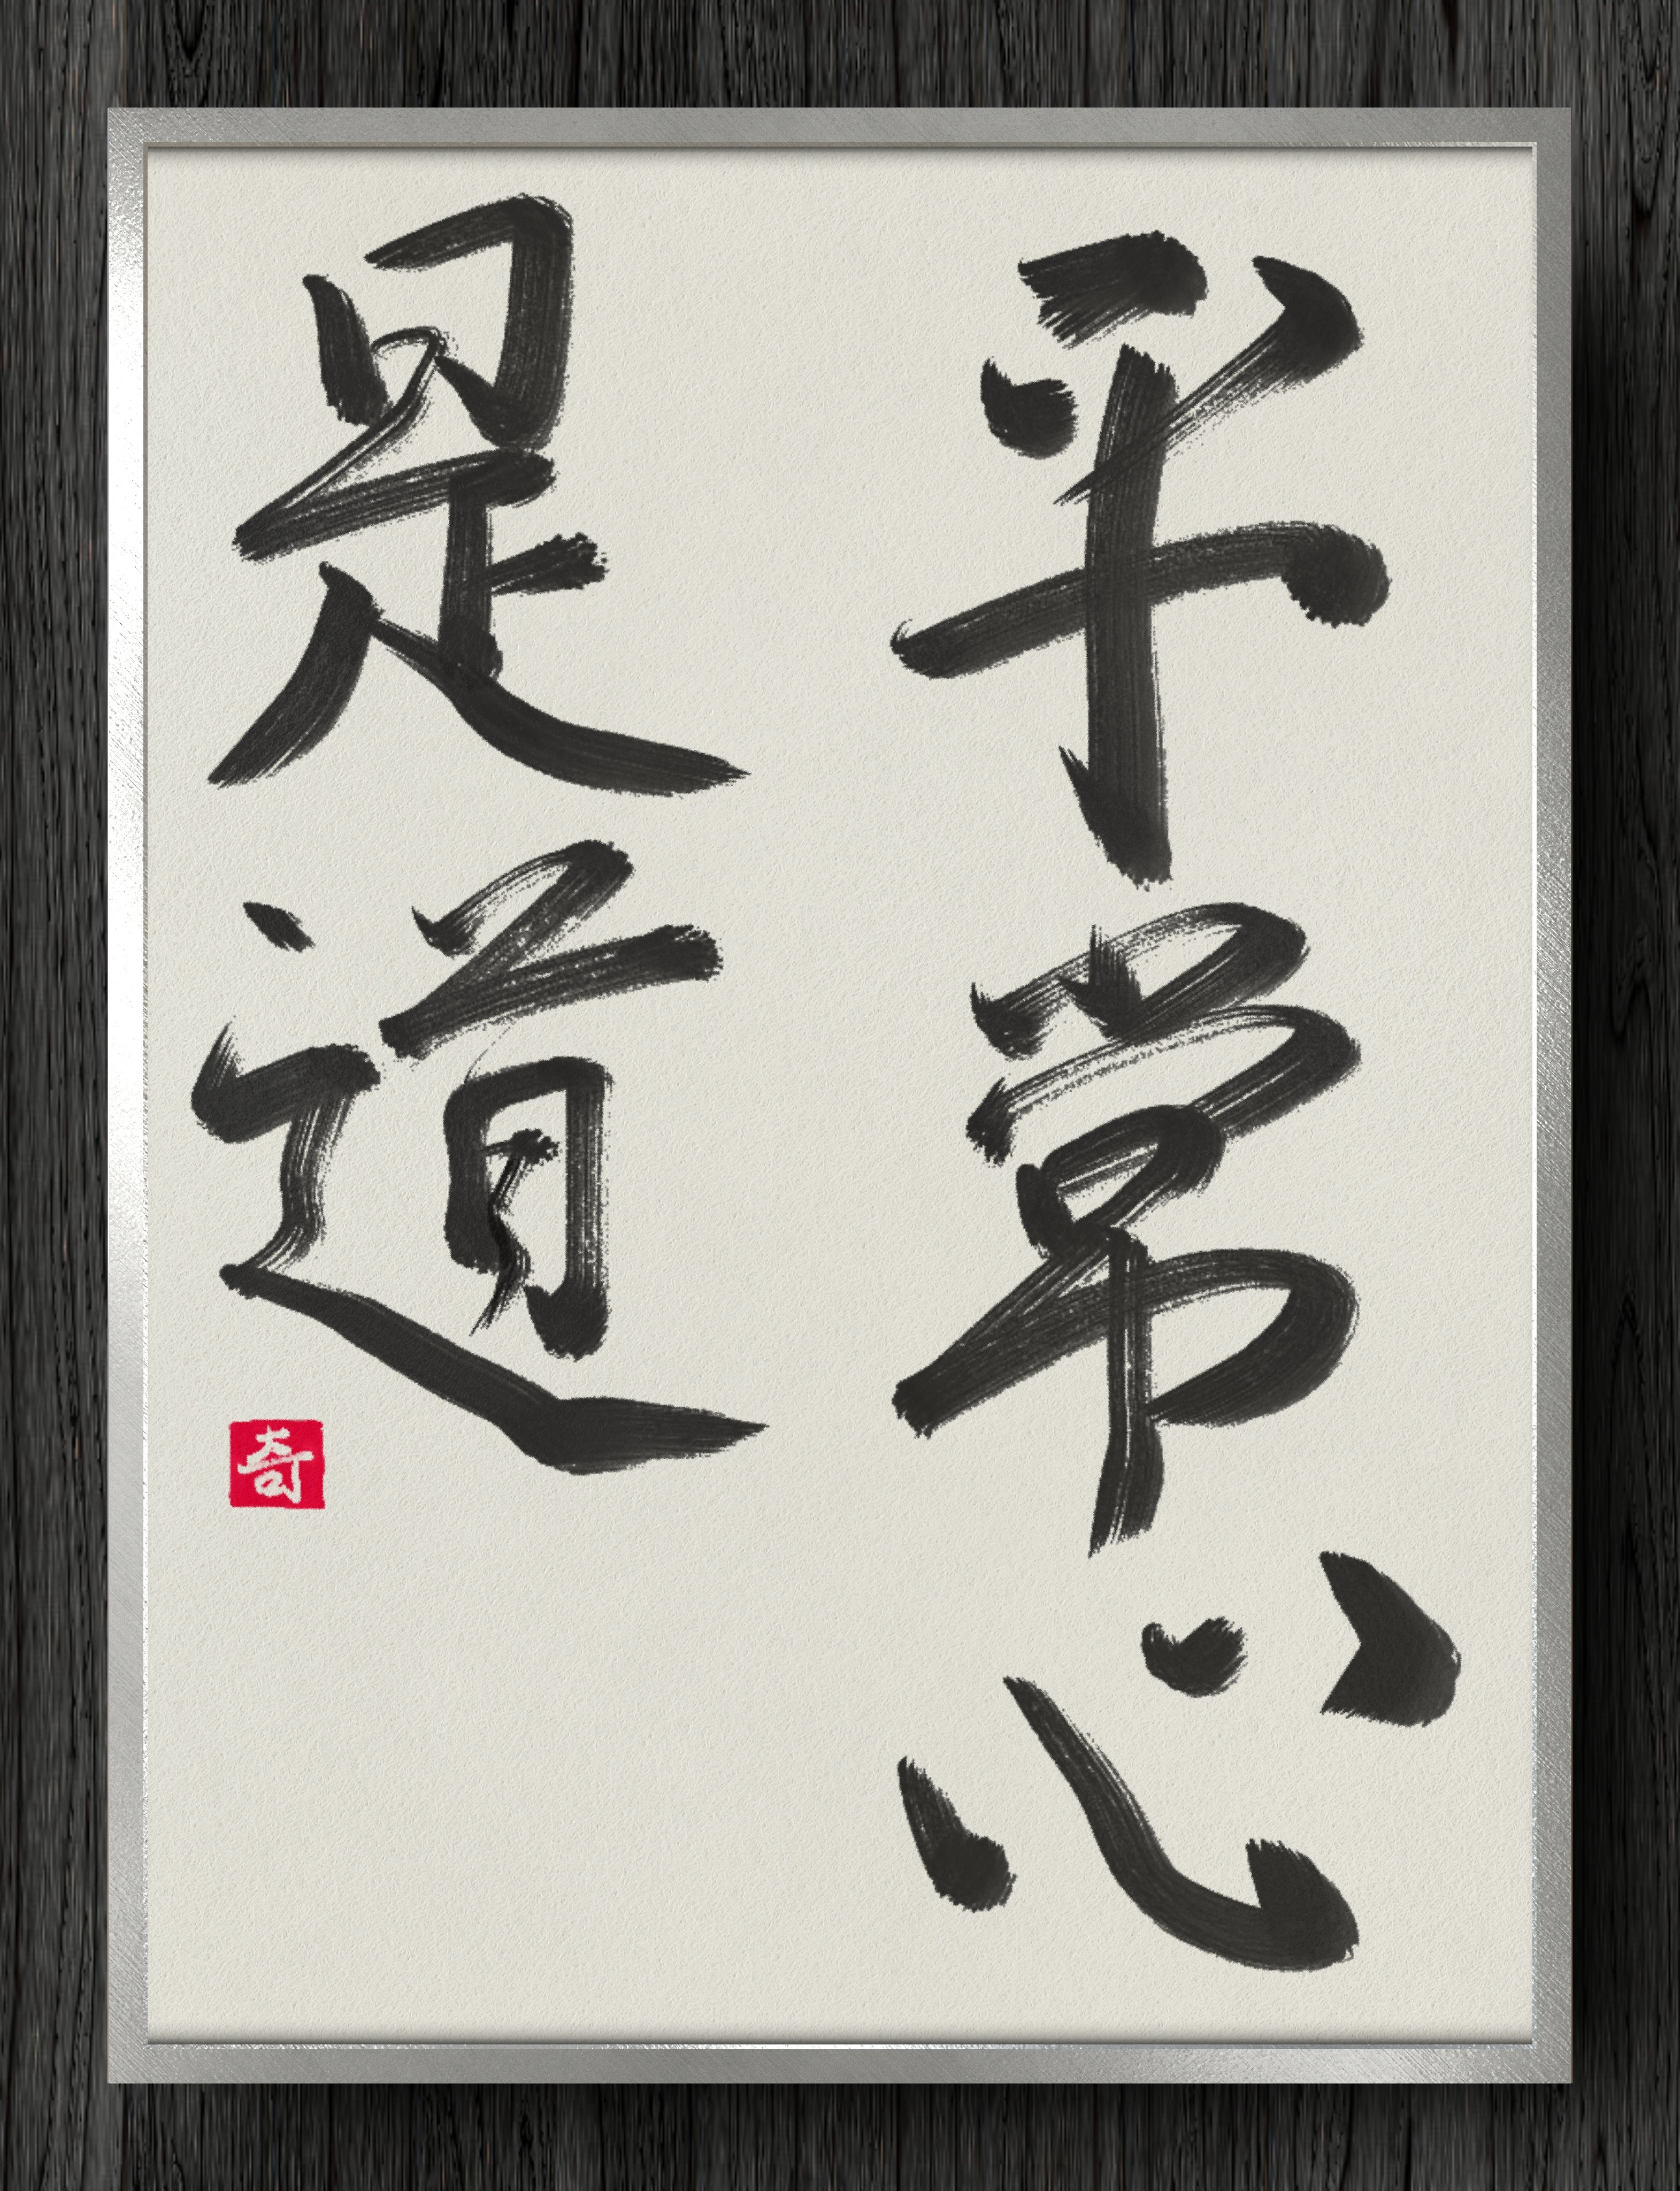 平常心
是道
奇